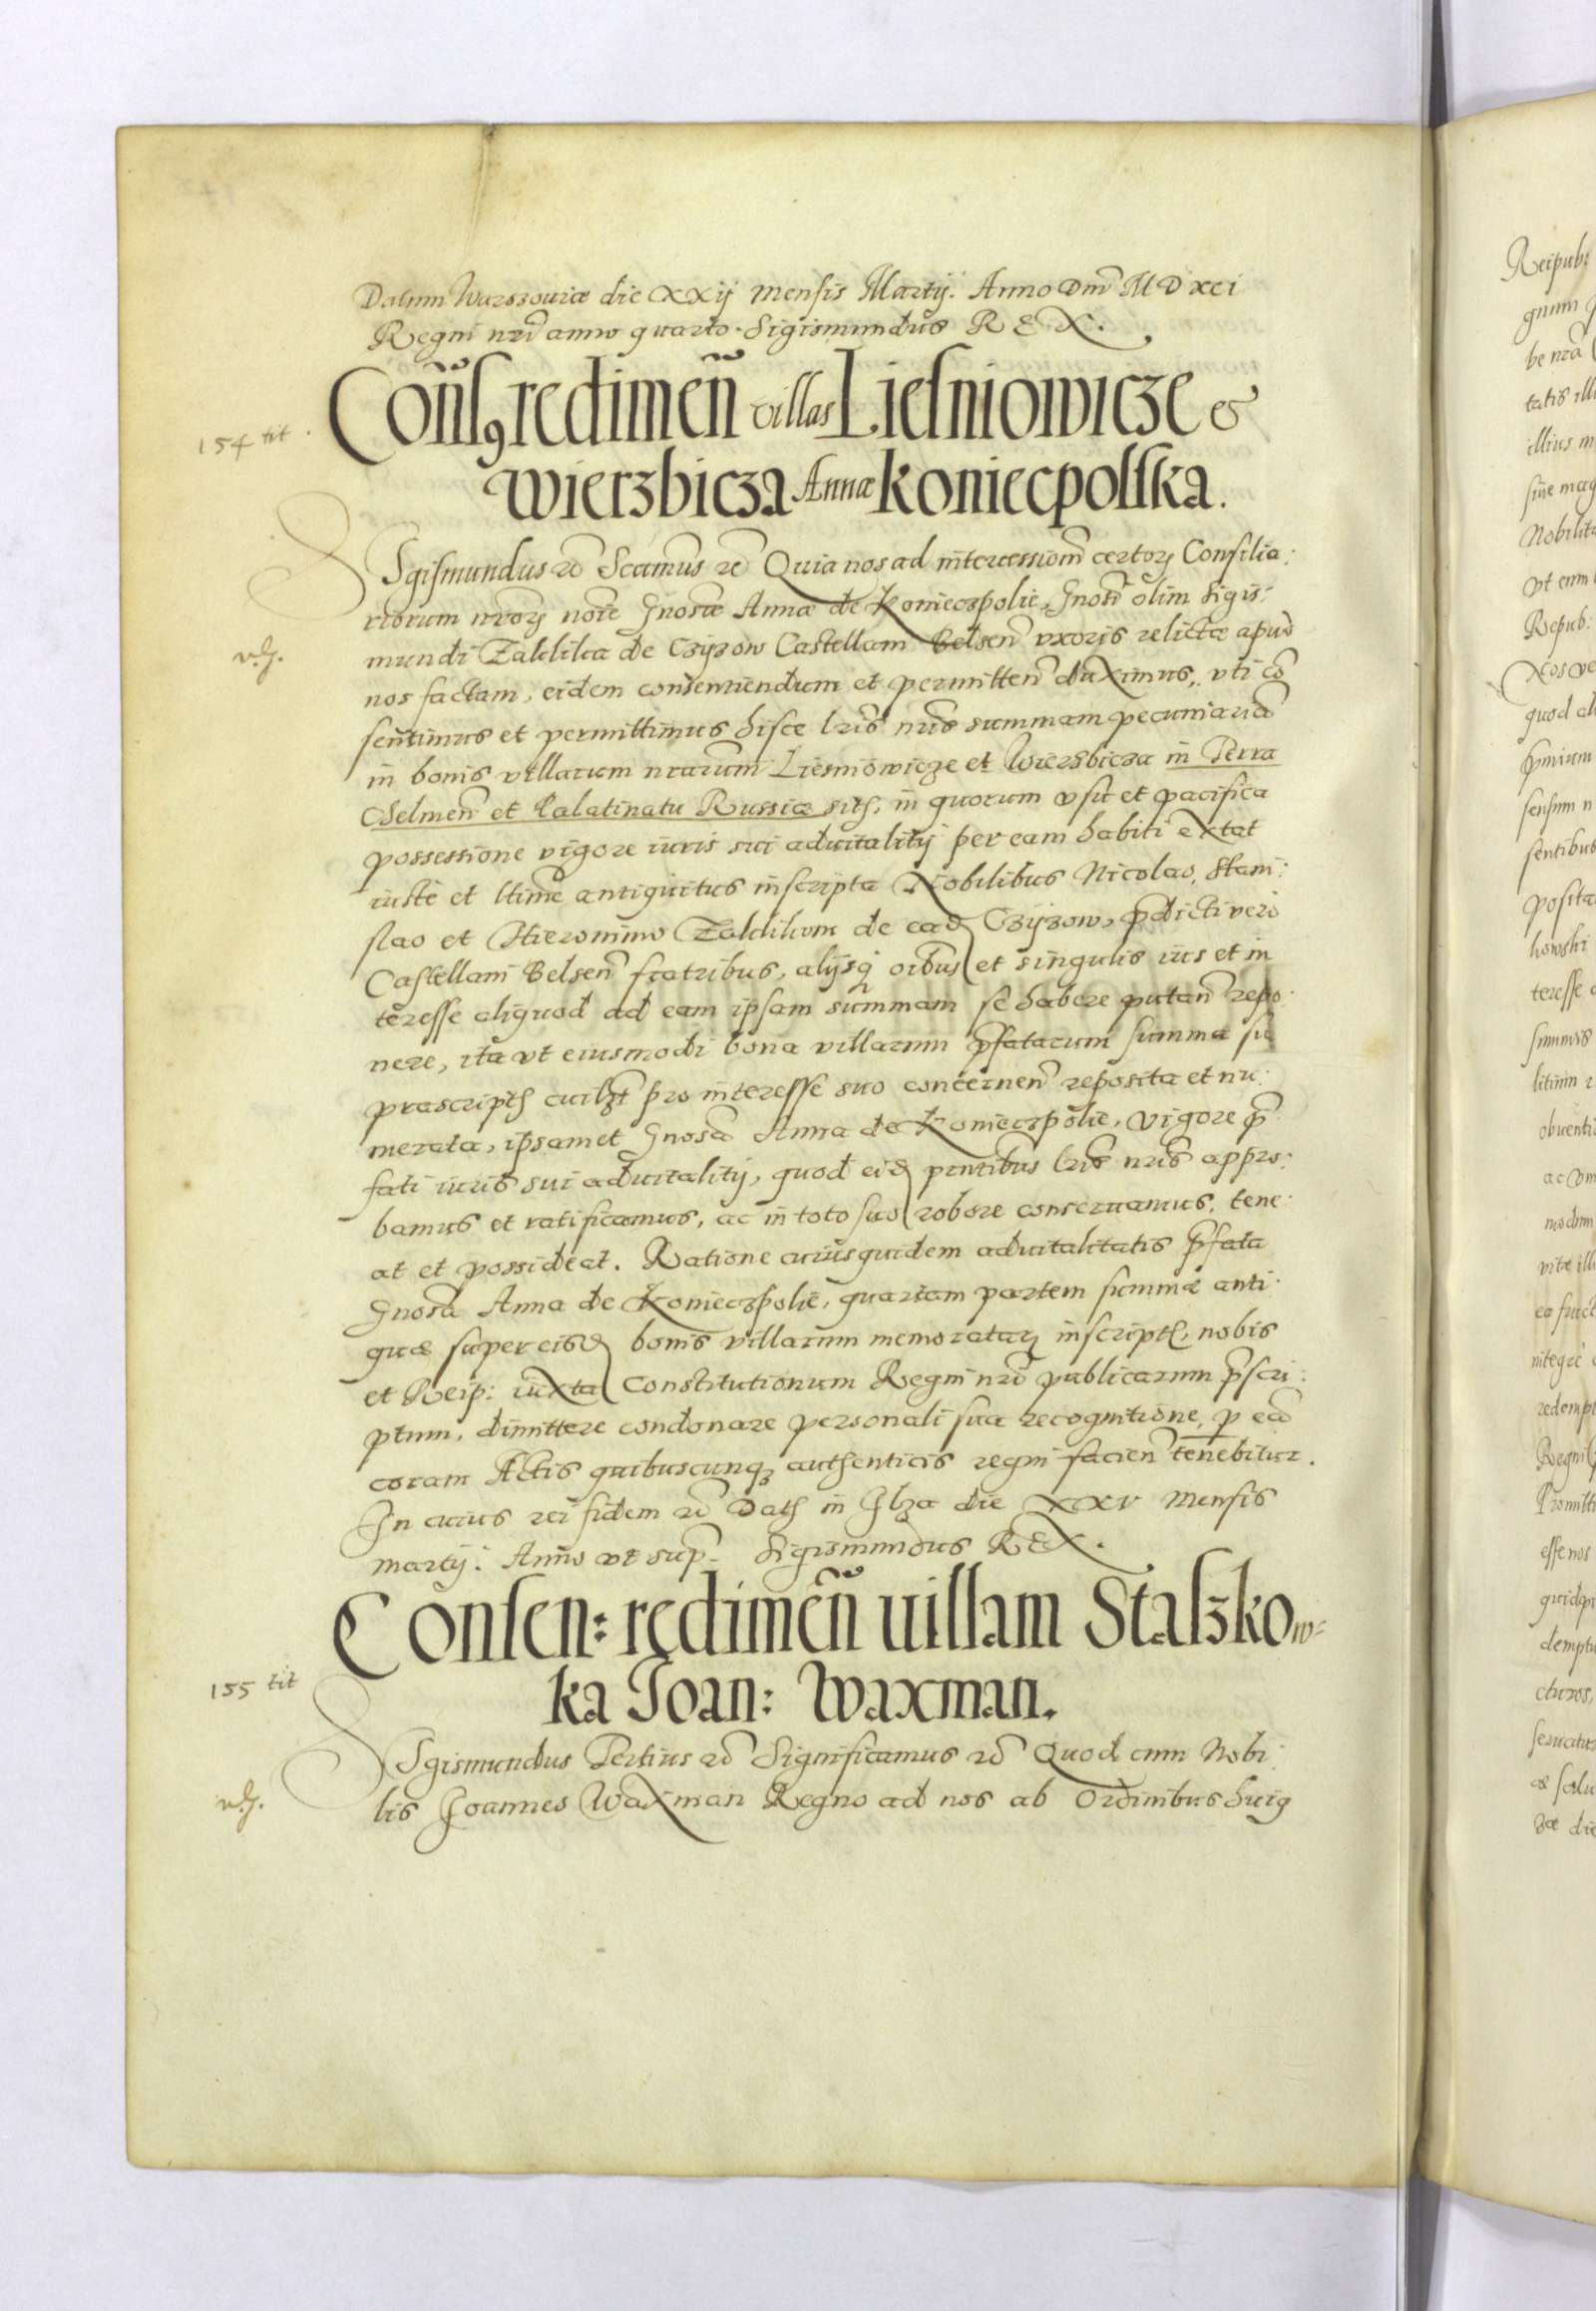 Datum Warszouiæ die XXij Mensis Martij. Anno Dnĩ M D xci
Regni nrĩ anno quarto. Sigismundus REX.
154 tit.
Conũsꝯ redimeñ villas Liesniowicze et
Wierzbicza Annæ Koniecpolska.
SIgismundus rõ Scimus rõ Quia nos ad intercessionẽ certorꝫ Consilia:
riorum nrorꝫ noĩe Gnosæ Annæ de Konieczpolie, Gnosi olim Sigis:
mundi Zaklika de Czyzow Castellani Belsen̄ vxoris relictæ apud
nos factam, eidem consentiendum et permitten̄ duximus, vti cõ
sentimus et permittimus hisce lrĩs nrĩs summam pecuniariã
in bonis villarum nrarum Liesniowicze et Wierzbicza in Terra
Chelmen̄ et Palatinatu Russiæ sitis, in quorum vsu et pacifica
possessione vigore iuris sui aduitalitij per eam habiti extat
iuste et ltime antiquitus inscripta Nobilibus Nicolao, Stani:
slao et Hieronimo Zaklikom de eadẽ Czyzow, p̃dicti vero
Castellani Belsen̄ fratribus, alijsq̃ oĩbus et singulis ius et in
teresse aliquod ad eam ipsam summam se habere putan̄ repo
nere, ita vt eiusmodi bona villarum p̃fatarum summa su
prascriptis cuilibet pro interesse suo concernen̄ reposita et nu:
merata, ipsamet Gnosa Anna de Konieczpolie, vigore p̃
fati iuris sui aduitalitij, quod eidẽ pn̄tibus lrĩs nrĩs appro:
bamus et ratificamus, ac in toto suo robore conseruamus, tene:
at et possideat. Ratione cuiusquidem aduitalitatis p̃fata
Gnosa Anna de Konieczpolie, quartam partem summæ anti:
quæ super eisdẽ bonis villarum memoratarꝫ inscriptæ, nobis
et Reip: iuxta Constitutionum Regni nrĩ publicarum p̃scri:
ptum, dimittere condonare personali sua recognitione, p eã
coram Actis quibuscunqꝫ authenticis regni facien̄ tenebitur.
In cuius rei fidem rõ Datꝭ in Ilza die XXV Mensis
martij. Anno vt sup̃. Sigismundus REX.
Consen: redimeñ uillam Stalzkow=
155 tit
ka Ioan: Waxman.
SIgismundus Tertius rõ Significamus rõ Quod cum Nobi:
lis Joannes Waxman Regno ad nos ab Ordinibus huiꝯ